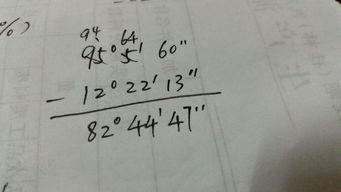 94 64
95° 5' 60"
- 12° 22' 13"
82° 44' 47"